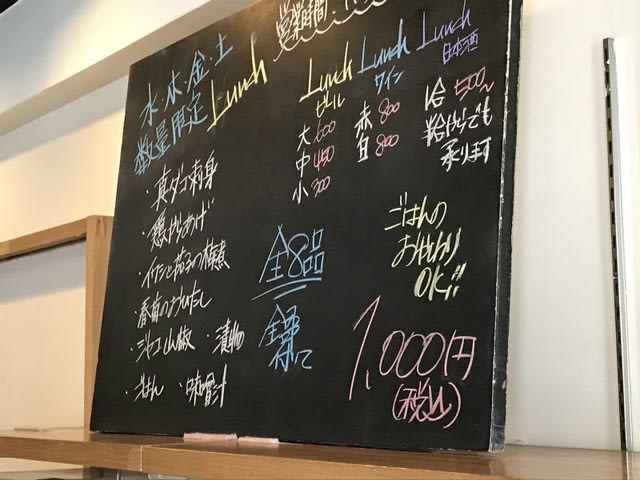 営業時間
水・木・金・土
数量限定
Lunch
・真ダコ刺身
・鶏からあげ
・イワシと茄子の梅煮
・春菊のおひたし
・ジャコ山椒 ・漬物
・ごはん ・味噌汁
全8品
全部
付いて
Lunch
ビール
大 600
中 450
小 300
Lunch
ワイン
赤 800
白 800
Lunch
日本酒
1合 500〜
半合からでも
承ります
ごはんの
おかわり
OK!!
1,000円
(税込)